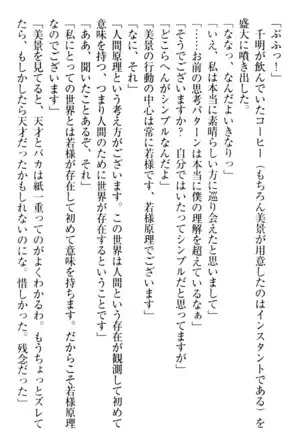 「ぶふっ！」
　千明が飲んでいたコーヒー（もちろん美景が用意したのはインスタントである）を
盛大に噴き出した。
「ななっ、なんだよいきなりっ」
「いえ、私は本当に素晴らしい方に巡り会えたと思いまして」
「……お前の思考パターンは本当に僕の理解を超えているなぁ」
「そうでございますか？　自分ではいたってシンプルだと思っておりますが」
「どこらへんがシンプルなんだよ」
「美景の行動の中心は常に若様、若様原理でございます」
「なに、それ」
「人間原理という考え方がございます。この世界は人間という存在が観測して初めて
意味を持つ、つまり人間のために世界が存在するということです」
「ああ、聞いたことあるぞ、それ」
「私にとっての世界とは若様が存在して初めて意味を持ちます。だからこそ若様原理
なのでございます」
「美景を見てると、天才とバカは紙一重ってのがよくわかるわ。もうちょっとズレて
たら、もしかしたら天才だったかもしれないのにな。惜しかった。残念だった」